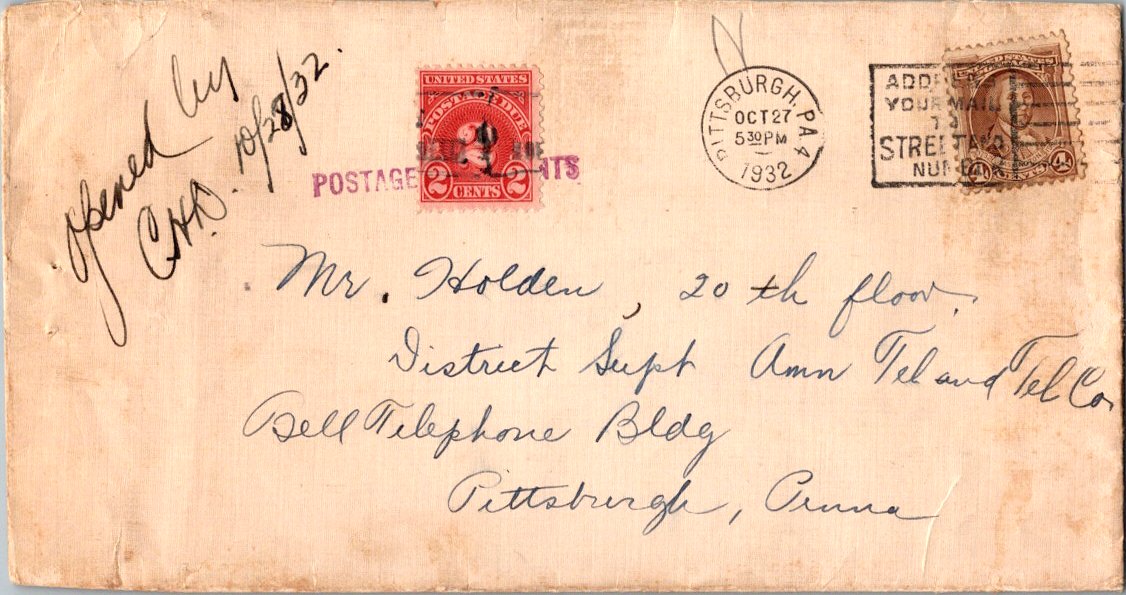 opened by
CHD. 10/28/32.
UNITED STATES
POSTAGE DUE
2
2 CENTS 2
POSTAGE NTS
PITTSBURGH, PA 4
OCT 27
5 30 PM
1932
YOUR MAIL
TO
STREET AND
Mr. Holden, 20th floor.
District Supt Amn Tel and Tel Co.
Bell Telephone Bldg
Pittsburgh, Penna